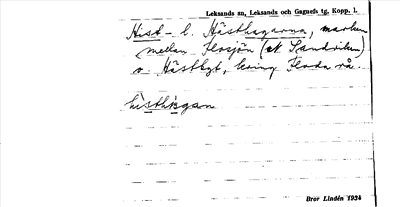 Leksands sn, Leksands och Gagnefs tg, Kopp. l.
Hist- l. Hästhagarna, marken
mellan Flosjön (åt Sandviken)
o. Hästbgt, kring Floda rå.
histhagan
Bror Lindén 1924